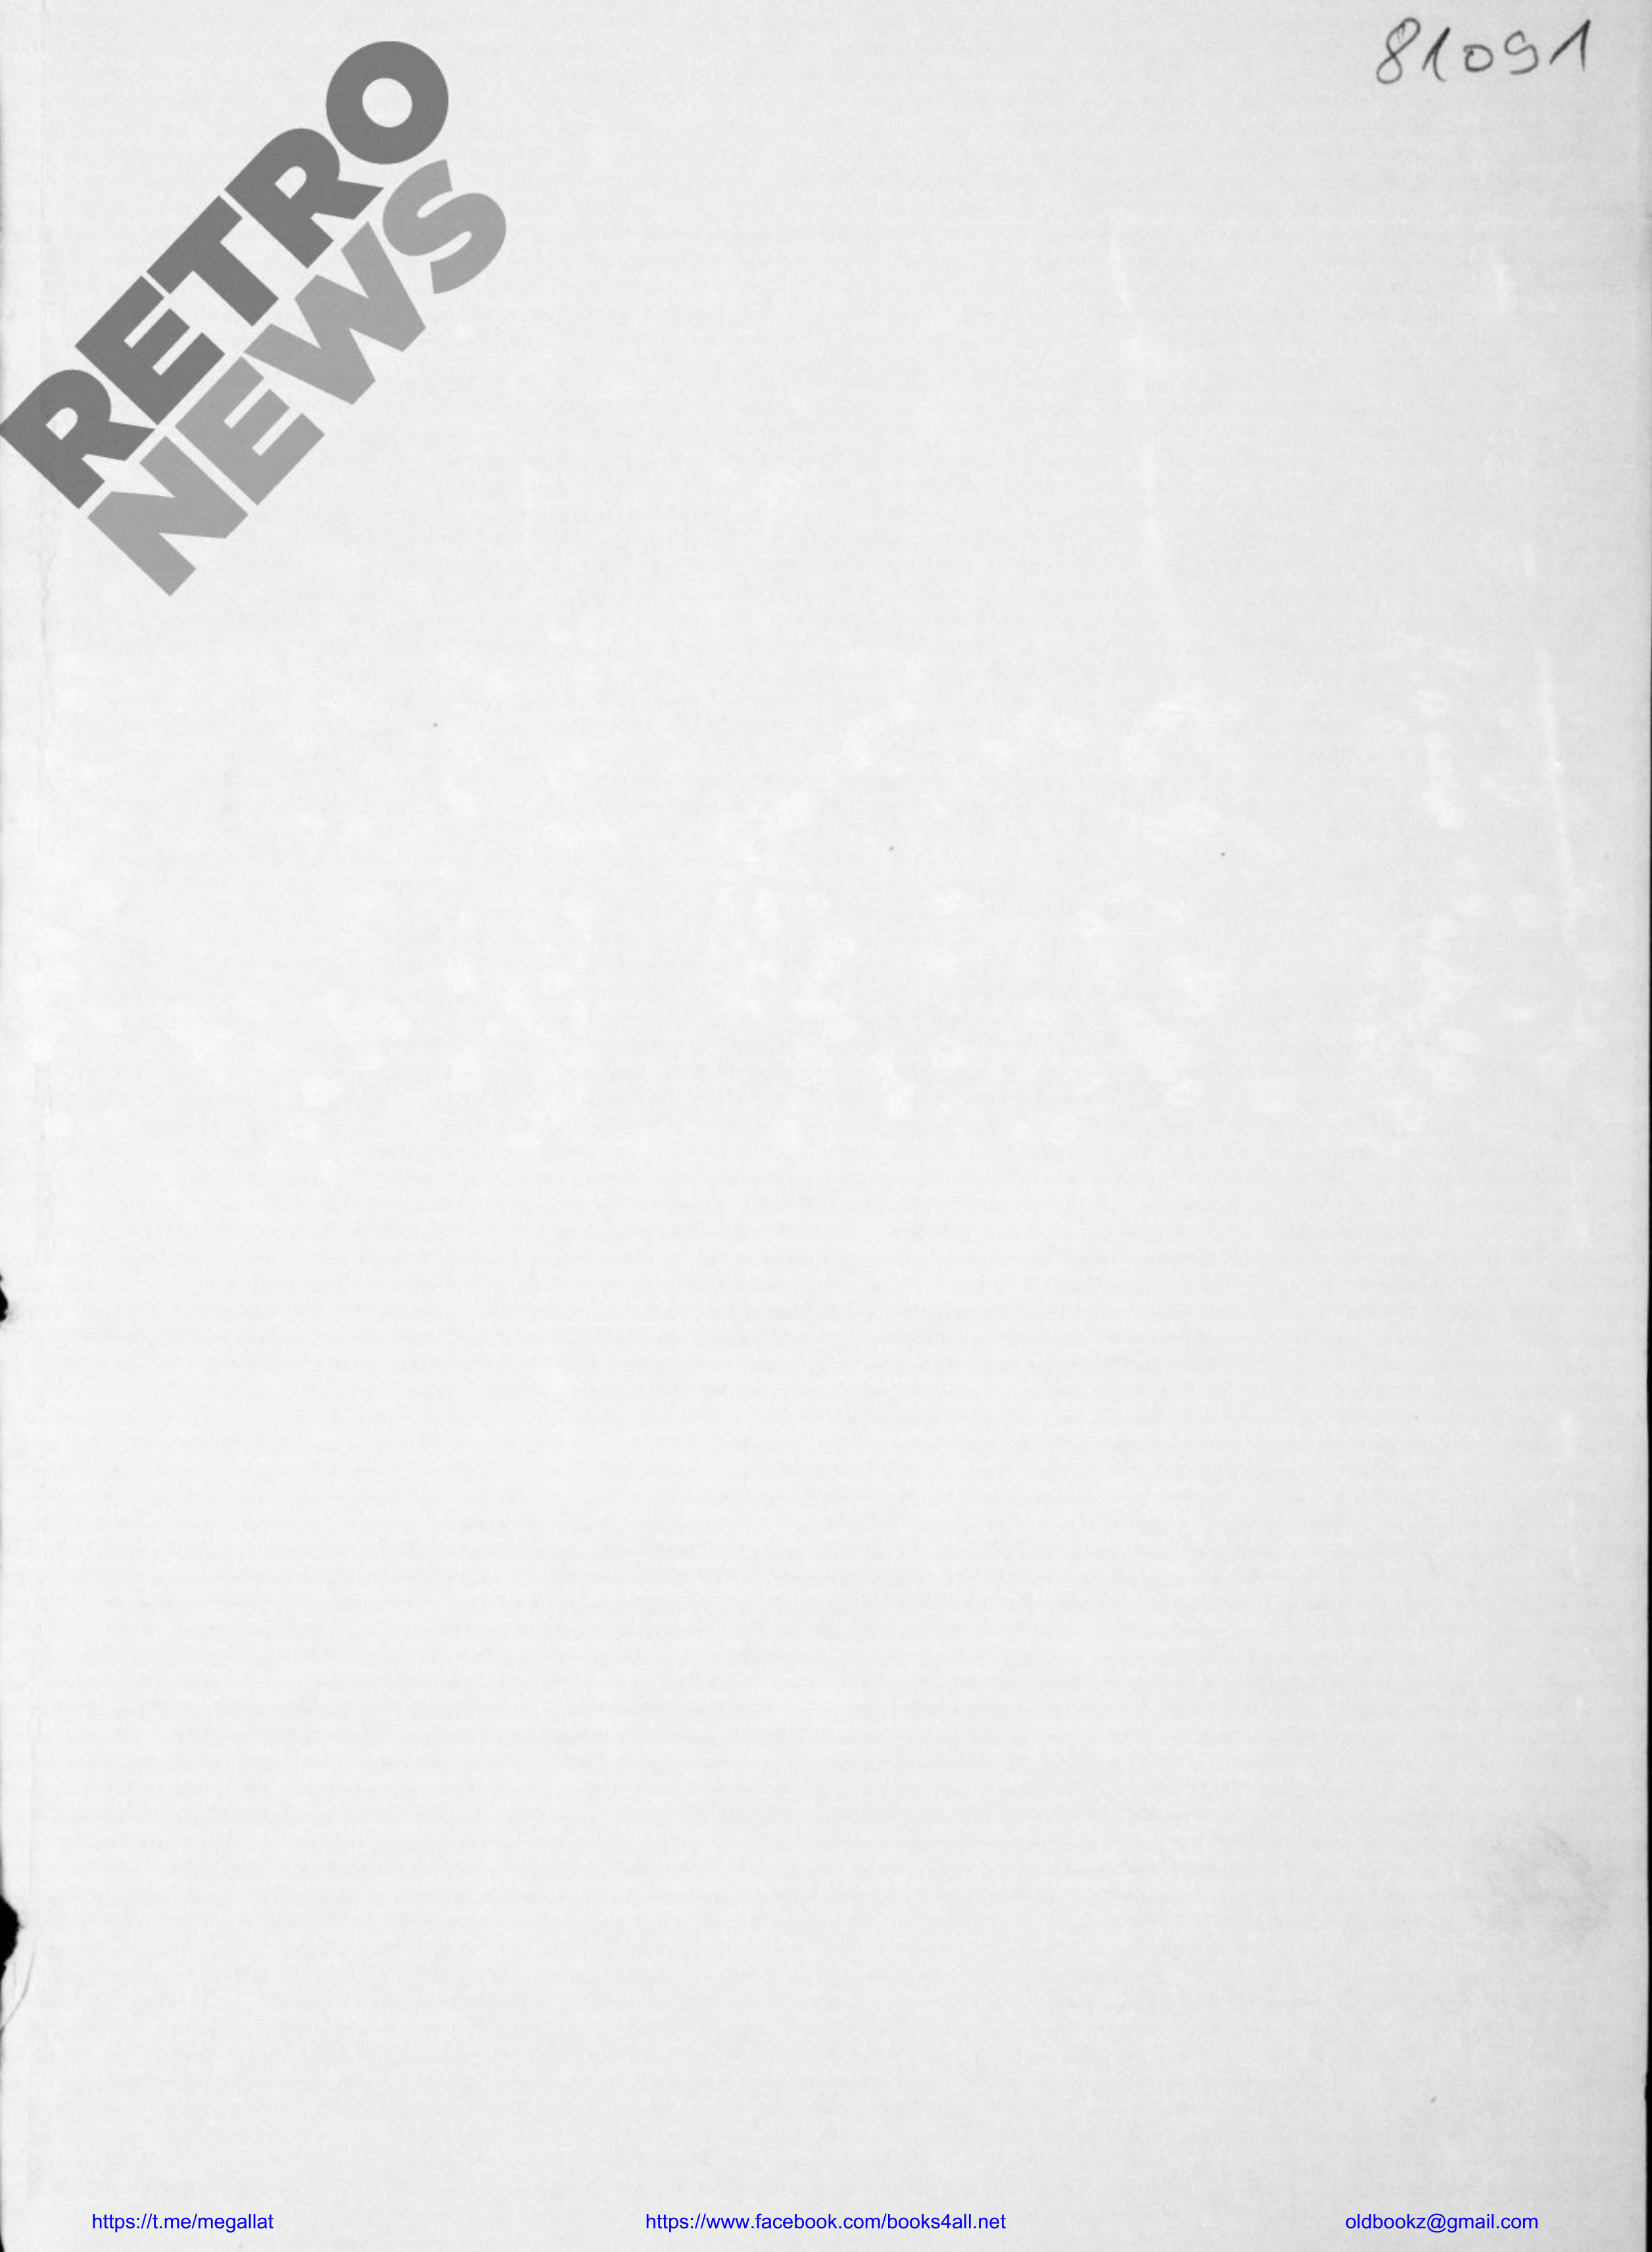 81091
RETRO
NEWS
https://t.me/megallat
https://www.facebook.com/books4all.net
oldbookz@gmail.com